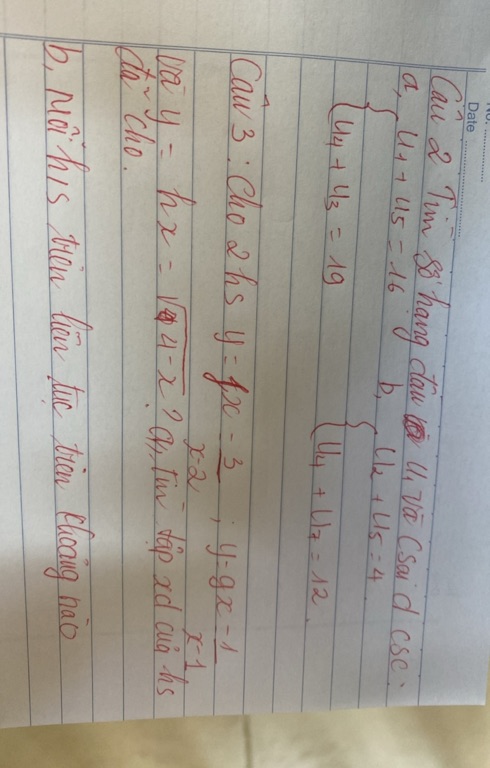 No:
Date
Câu 2 Tìm số hạng đầu u₁ và csai d csc.
a, { u₁ + u₅ = 16    b, { u₂ + u₅ = 4
u₄ + u₃ = 19    u₄ + u₇ = 12.
Câu 3 : Cho 2 hs y = fx = 3/x-2 ; y = gx = 1/x-1
và y = hx = √4-x ? a, tìm tập xđ của hs
đã cho.
b, Mỗi h/s trên liên tục trên khoảng nào